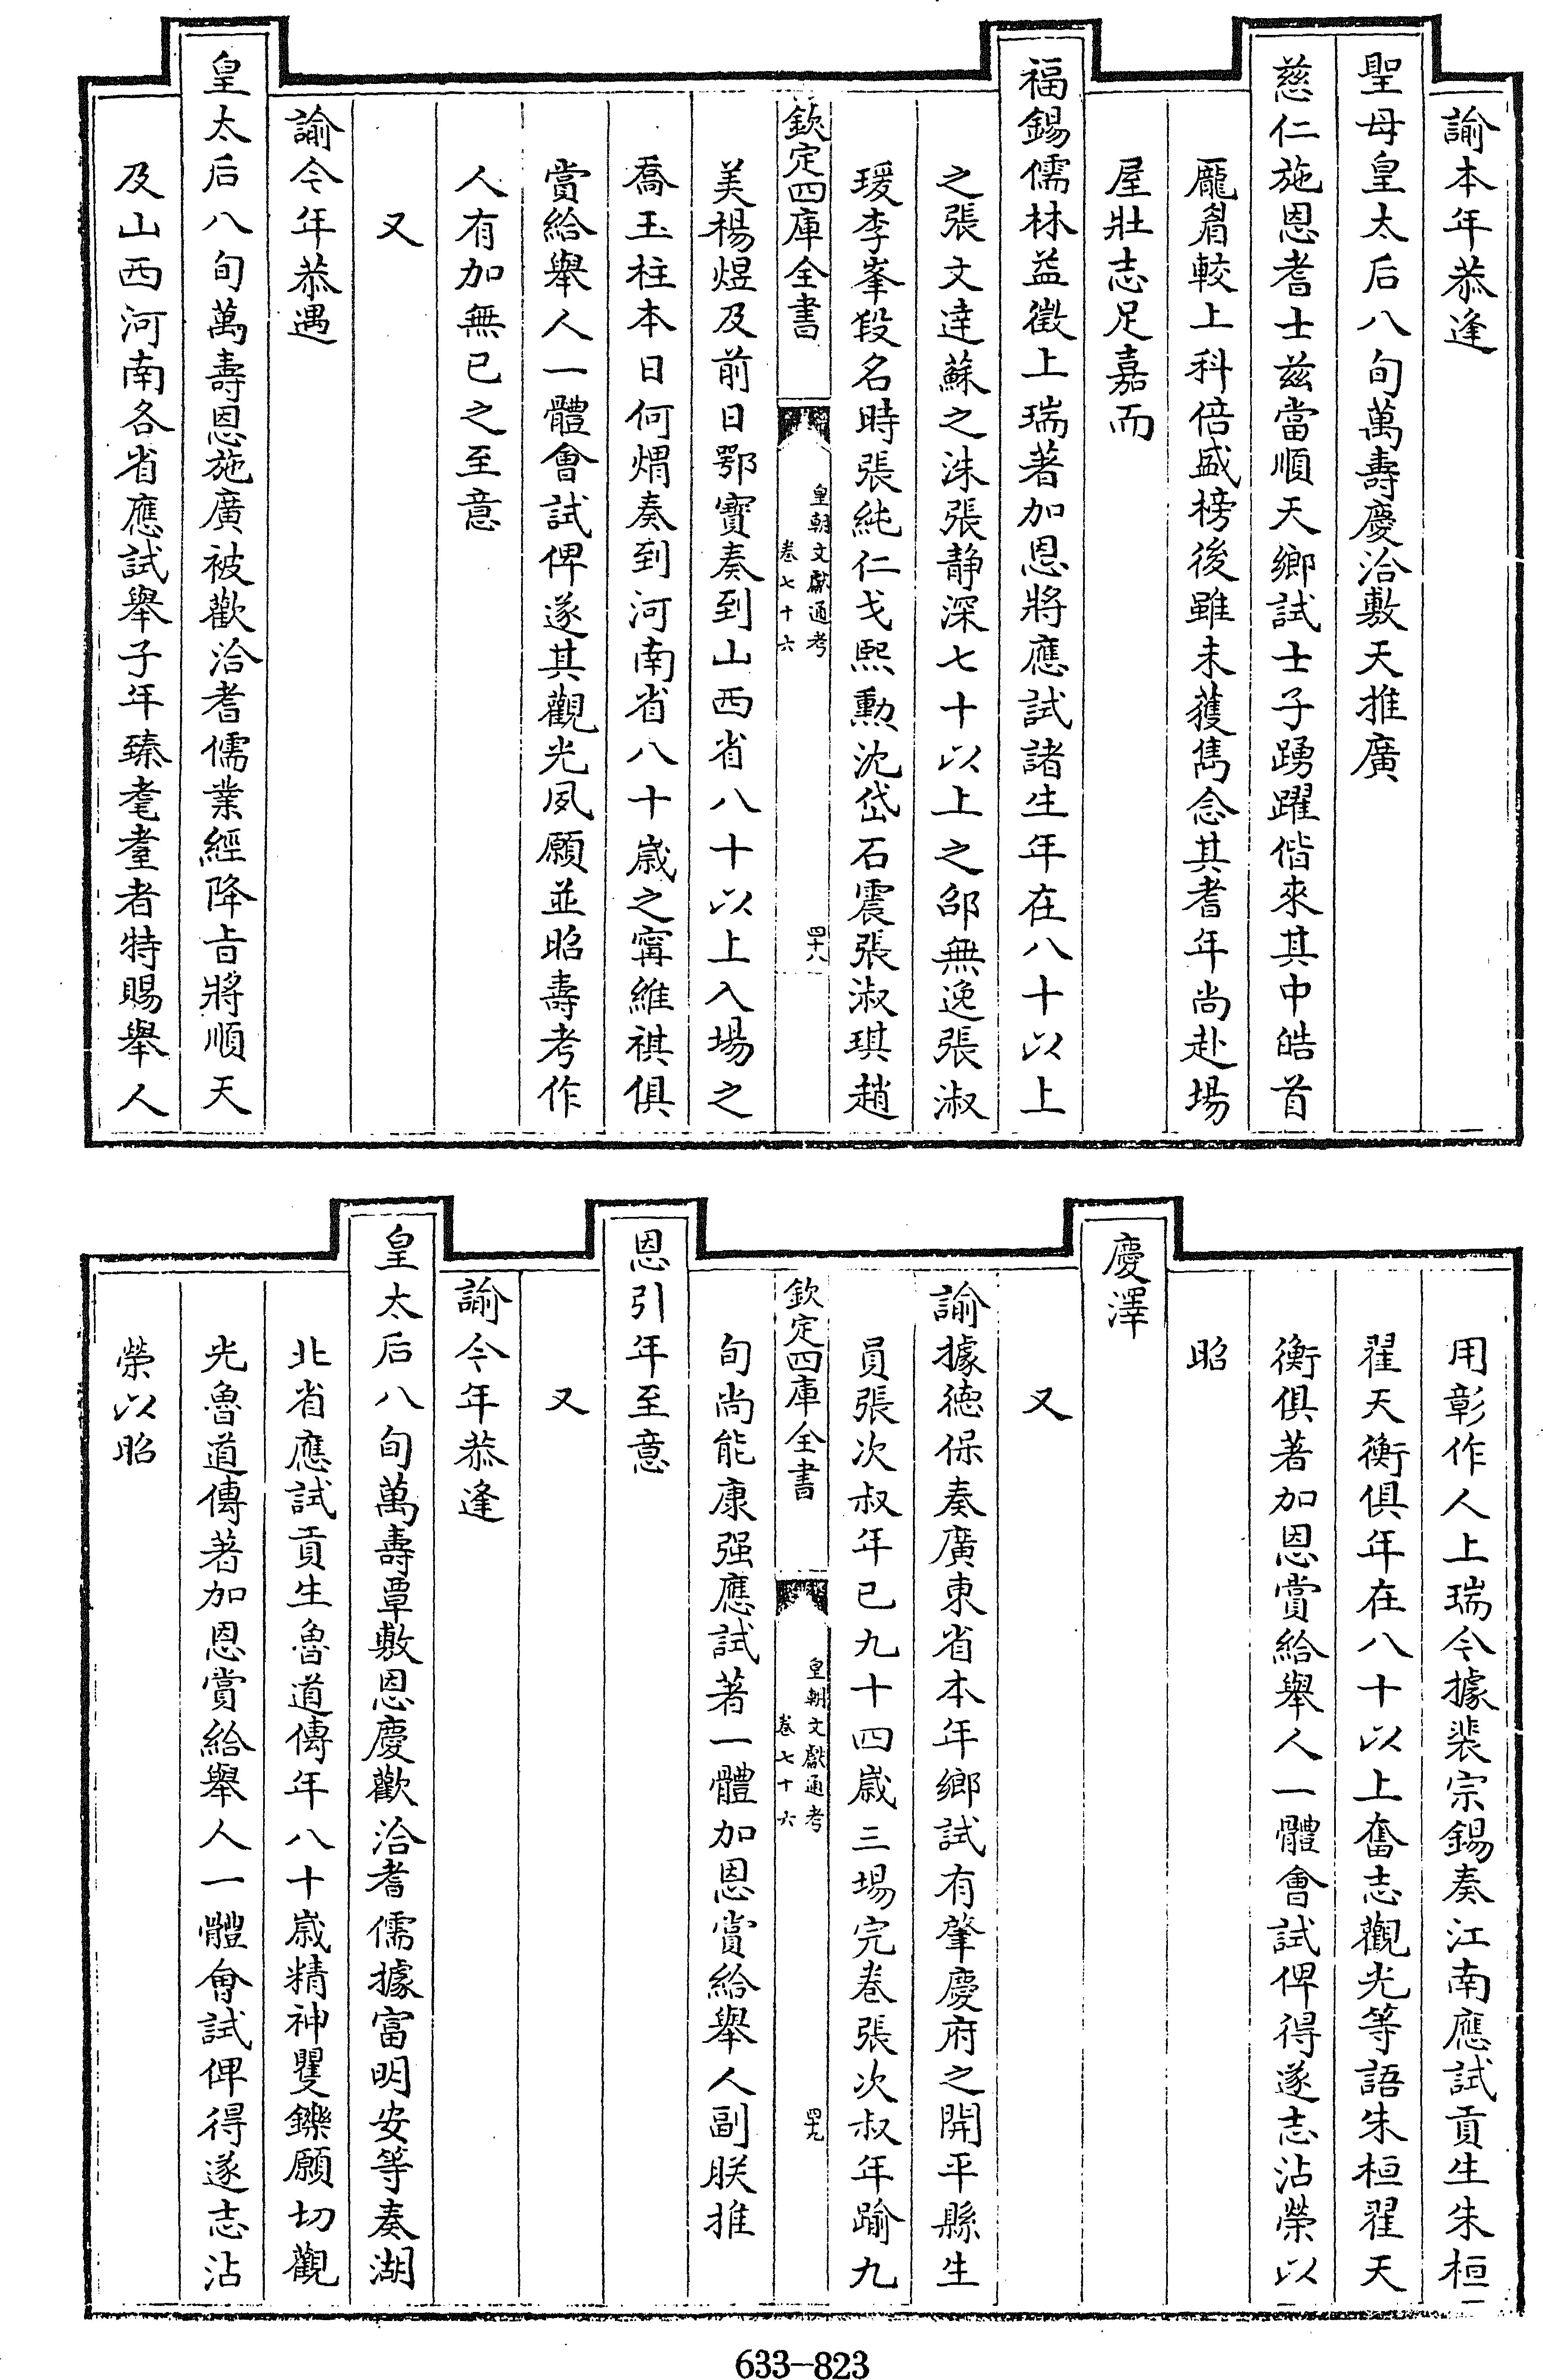 諭本年恭逢
聖母皇太后八旬萬壽慶洽敷天推廣
慈仁施恩耆士兹當順天鄉試士子踴躍偕來其中皓首
龐眉較上科倍盛榜後雖未獲雋念其耆年尚赴場
屋壯志足嘉而
福錫儒林益徵上瑞著加恩將應試諸生年在八十以上
之張文逹蘇之洙張静深七十以上之邵無逸張淑
瑗李峯段名時張純仁戈熙勳沈岱石震張淑琪趙
欽定四庫全書
皇朝文獻通考
卷七十六
四十八
美楊煜及前日鄂寳奏到山西省八十以上入場之
喬玉柱本日何煟奏到河南省八十歲之甯維祺俱
賞給舉人一體會試俾遂其觀光夙願並昭壽考作
人有加無已之至意
又
諭今年恭遇
皇太后八旬萬壽恩施廣被歡洽耆儒業經降㫖將順天
及山西河南各省應試舉子年臻耄耋者特賜舉人
用彰作人上瑞今據裴宗錫奏江南應試貢生朱桓
翟天衡俱年在八十以上奮志觀光等語朱桓翟天
衡俱著加恩賞給舉人一體會試俾得遂志沾榮以
昭
慶澤
又
諭據德保奏廣東省本年鄉試有肇慶府之開平縣生
員張次叔年已九十四歲三場完卷張次叔年踰九
欽定四庫全書
皇朝文獻通考
卷七十六
四十九
旬尚能康强應試著一體加恩賞給舉人副朕推
恩引年至意
又
諭今年恭逢
皇太后八旬萬壽覃敷恩慶歡洽耆儒據富明安等奏湖
北省應試貢生魯道傳年八十歲精神矍鑠願切觀
光魯道傳著加恩賞給舉人一體會試俾得遂志沾
榮以昭
633-823